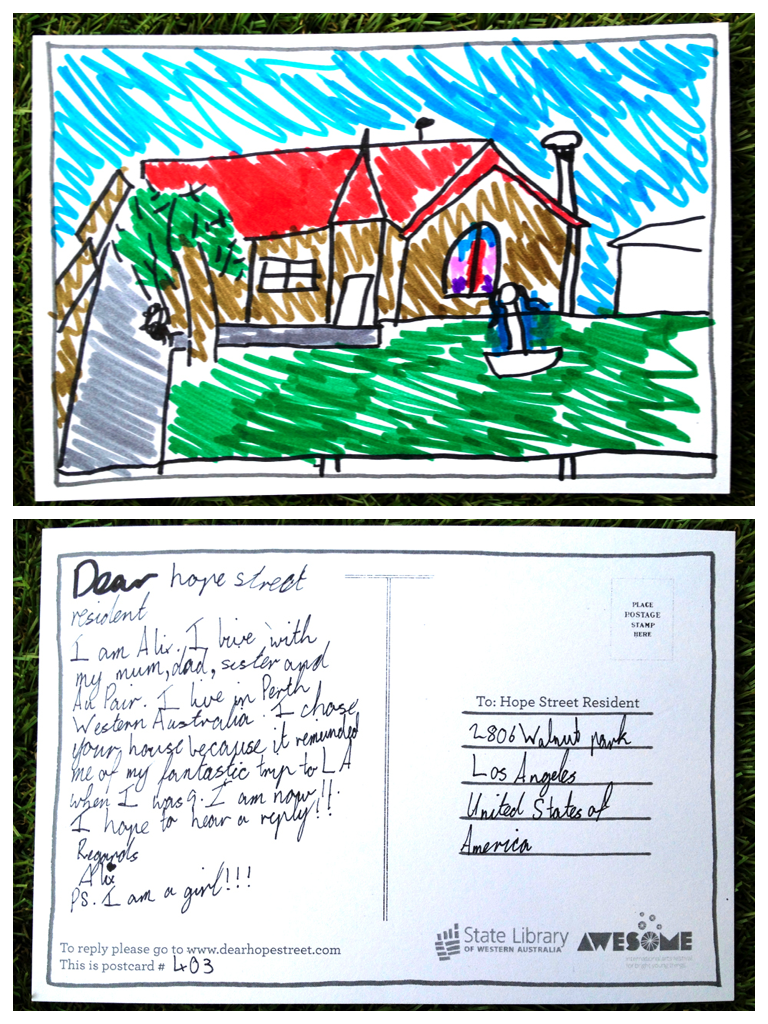 Dear hope street
resident
I am Alix. I live with
my mum, dad, sister and
Au Pair. I live in Perth
Western Australia. I chose
your house because it remunded
me of my fantastic trip to LA
when I was 9. I am now 11.
I hope to hear a reply!!
Regards
Alix
Ps. I am a girl!!!
To reply please go to www.dearhopestreet.com
This is postcard # 403
PLACE
POSTAGE
STAMP
HERE
To: Hope Street Resident
2806 Walnut park
Los Angeles
United States of
America
State Library
OF WESTERN AUSTRALIA
AWESOME